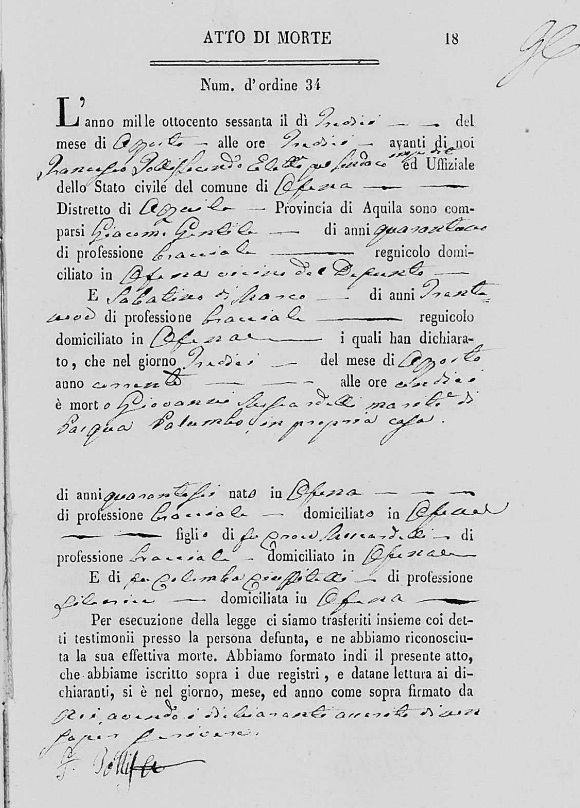 ATTO DI MORTE 18
Num. d'ordine 34
L'anno mille ottocento sessanta il dì Tredici del
mese di Agosto alle ore Tredici avanti di noi
Francesco Secondo Eletto pel Sindaco ed Uffiziale
dello Stato civile del comune di Ofena
Distretto di Aquila Provincia di Aquila sono com-
parsi Giacomo Gentile di anni
di professione bracciale regnicolo domi-
ciliato in Ofena vicino del Defunto
E Sabatino di Marco di anni Trenta
di professione bracciale regnicolo
domiciliato in Ofena i quali han dichiara-
to, che nel giorno Tredici del mese di Agosto
anno corrente alle ore
è morto Giovanni marito di
Pasqua Palumbo in propria casa.
di anni quarantasei nato in Ofena
di professione bracciale domiciliato in Ofena
figlio di fu di
professione bracciale domiciliato in Ofena
E di fu Colomba di professione
domiciliata in Ofena
Per esecuzione della legge ci siamo trasferiti insieme coi det-
ti testimonii presso la persona defunta, e ne abbiamo riconosciu-
ta la sua effettiva morte. Abbiamo formato indi il presente atto,
che abbiame iscritto sopra i due registri, e datane lettura ai di-
chiaranti, si è nel giorno, mese, ed anno come sopra firmato da
noi, avendo i dichiaranti asserito di non
saper scrivere.